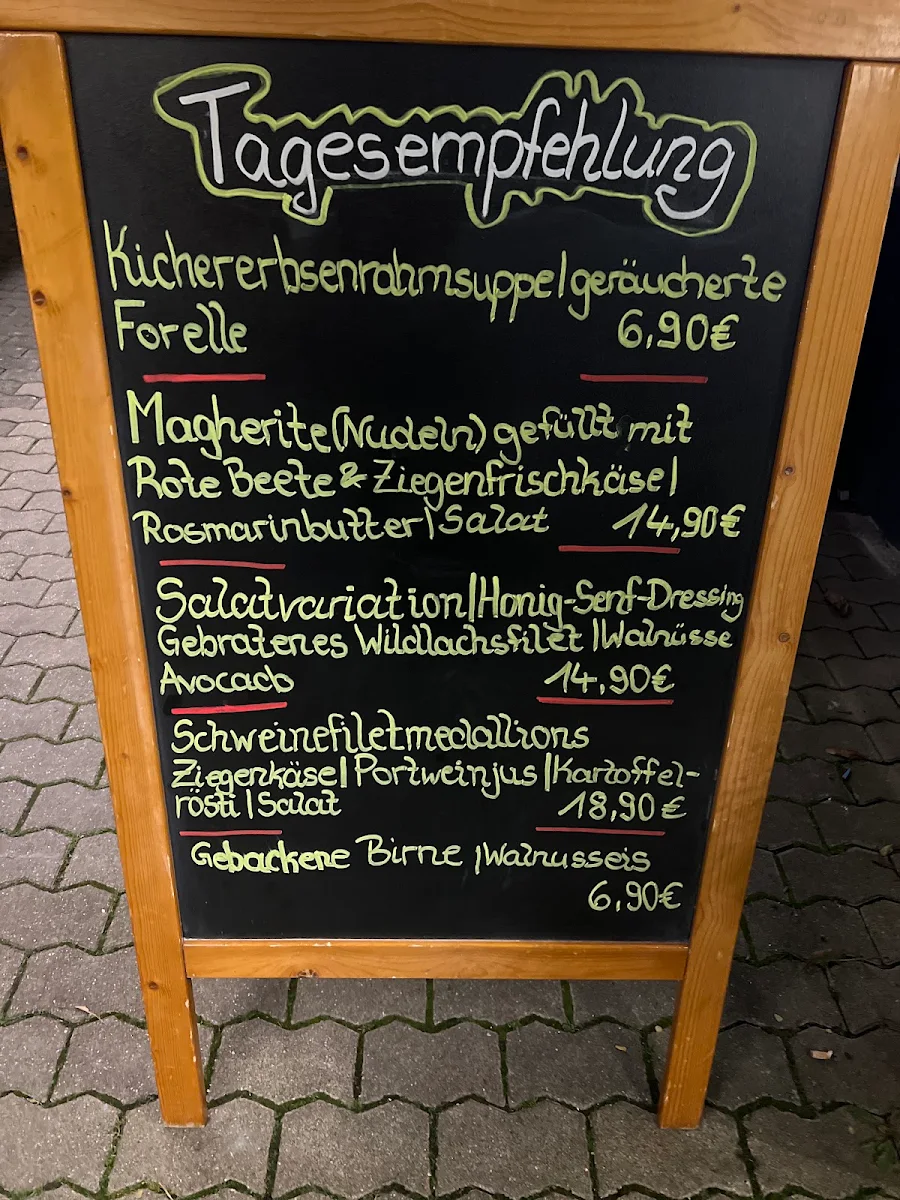 Tagesempfehlung
Kichererbsenrahmsuppe|geräucherte
Forelle 6,90€
Magherite(Nudeln) gefüllt mit
Rote Beete & Ziegenfrischkäse|
Rosmarinbutter|Salat 14,90€
Salatvariation|Honig-Senf-Dressing
Gebratenes Wildlachsfilet |Walnüsse
Avocado 14,90€
Schweinefiletmedallions
Ziegenkäse|Portweinjus|Kartoffel-
rösti|Salat 18,90€
Gebackene Birne |Walnusseis
6,90€